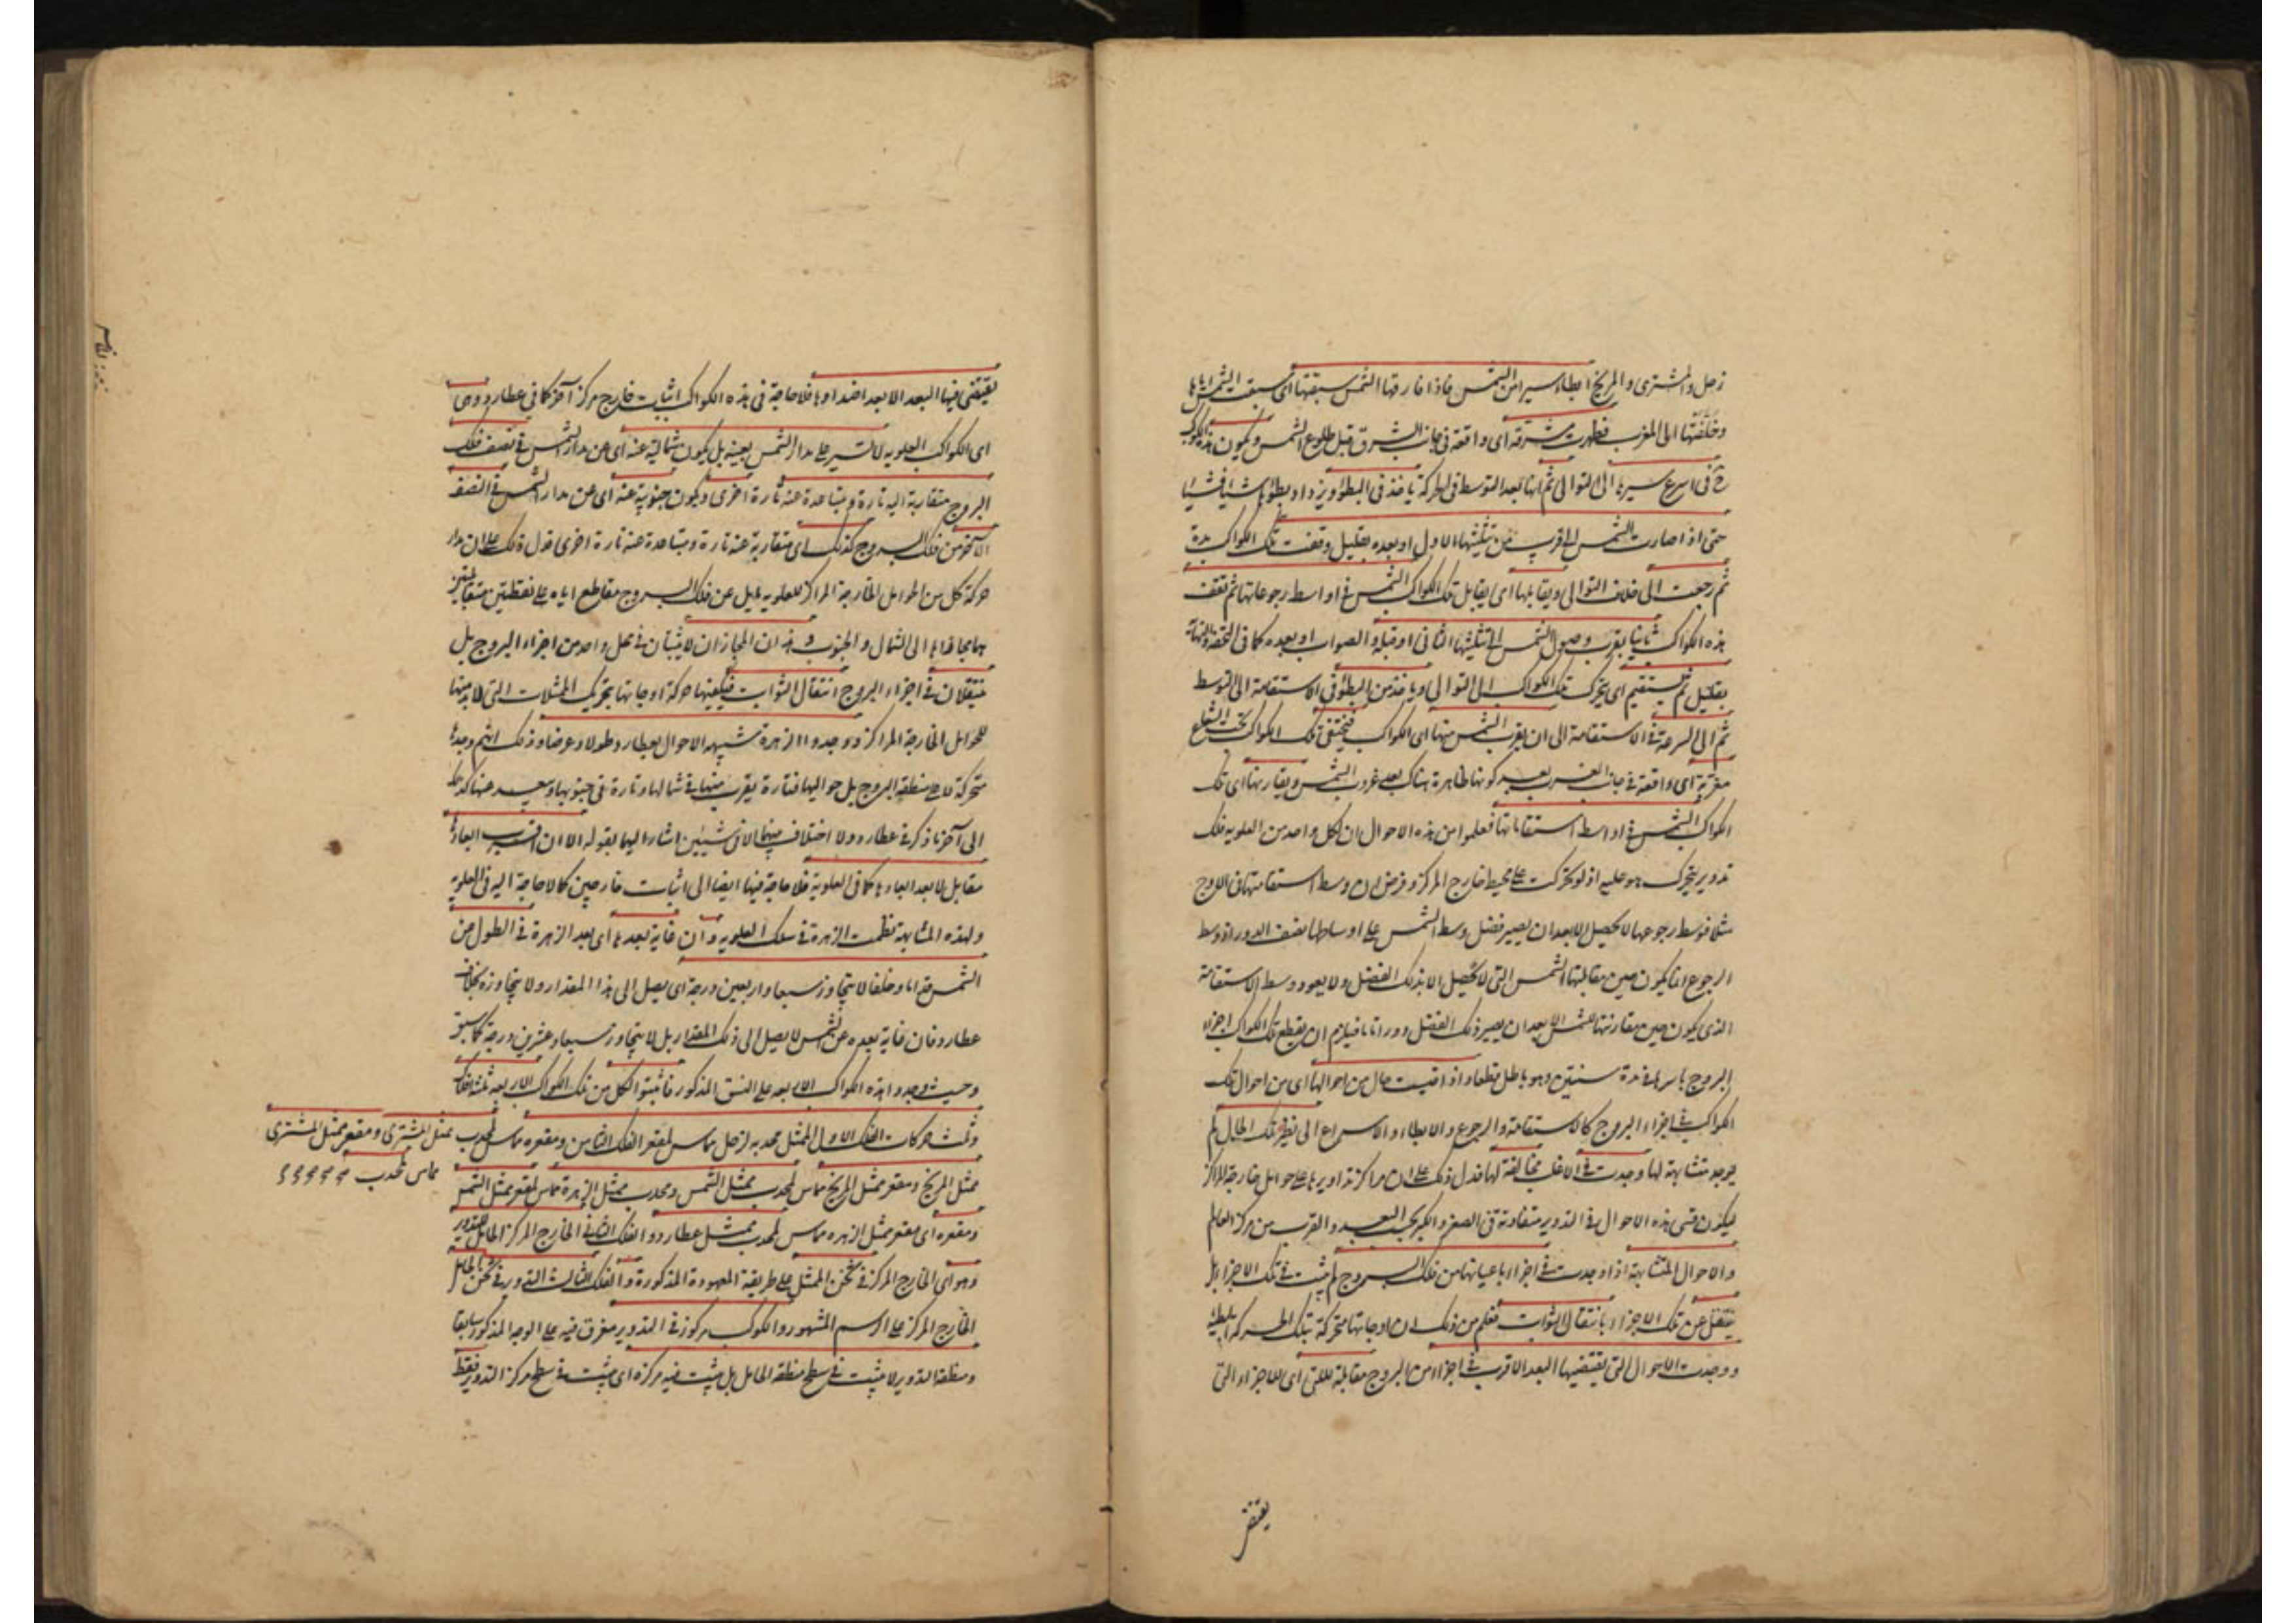 زحل والمشترى والمريخ ابطاء سيرا من الشمس فاذا فارقها الشمس سبقتها اى سبقت الشمس اياها
وخلفتها الى المغرب فظهرت مشرقة اى واقعة فى جانب الشرق قبل طلوع الشمس ويكون هذه الكواكب
ح فى اسرع سيرها الى التوالى ثم انها بعد التوسط فى الحركة ياخذ فى البطؤ ويزداد بطؤها شيئا فشيئا
حتى اذا صارت الشمس الى قرب من تثليثها الاول او بعده بقليل وقفت تلك الكواكب مدة
ثم رجعت الى خلاف التوالى ويقابلها اى يقابل تلك الكواكب الشمس فى اواسط رجوعاتها ثم تقف
هذه الكواكب ثانيا بقرب وصول الشمس الى تثليثها الثانى او قبله والصواب او بعده كما فى التحفة والنهاية
بقليل ثم يستقيم اى يتحرك تلك الكواكب الى التوالى وياخذ من البطؤ فى الاستقامة الى التوسط
ثم الى السرعة فى الاستقامة الى ان يقرب الشمس منها اى الكواكب فيختفى تلك الكواكب تحت الشعاع
مغربة اى واقعة فى جانب الغرب بعد كونها ظاهرة هناك بعد غروب الشمس ويقارنها اى تلك
الكواكب الشمس فى اواسط استقاماتها فعلموا من هذه الاحوال ان لكل واحد من العلوية فلك
تدوير يتحرك هو عليه اذ لو تحركت على محيط خارج المركز وفرض ان وسط استقامتها فى الاوج
مثلا فوسط رجوعها لا يحصل الا بعد ان يصير فضل وسط الشمس على اوساطها نصف الدور اذ وسط
الرجوع انما يكون حين مقابلتها الشمس التى لا تحصل الا بذلك الفضل ولا يعود وسط الاستقامة
الذى يكون حين مقارنتها للشمس الا بعد ان يصير ذلك الفضل دورا تاما فيلزم ان يقطع تلك الكواكب اجزاء
البروج باسرها فى مدة سنتين وهو باطل قطعا واذا قيست حال من احوالها اى من احوال تلك
الكواكب فى اجزاء البروج كالاستقامة والرجوع والابطاء والاسراع الى نظير تلك الحال لم
يوجد متشابهة لها وجدت فى الاغلب مخالفة لها فدل ذلك على ان مراكز تداويرها على حوامل خارجة المراكز
ليكون قسى هذه الاحوال فى التدوير متفاوتة فى الصغر والكبر بحسب البعد والقرب من مركز العالم
والاحوال المتشابهة اذا وجدت فى اجزاء باعيانها من فلك البروج لم يثبت فى تلك الاجزاء بل
ينتقل عن تلك الاجزاء بانتقال الثوابت فعلم من ذلك ان اوجاتها متحركة بتلك الحركة البطيئة
ووجدت الاحوال التى يقتضيها البعد الاقرب فى اجزاء من البروج مقابلة للتى اى للاجزاء التى
يقتضى
يقتضى فيها البعد الابعد اضدادها فلا حاجة فى هذه الكواكب اثبات خارج مركز آخر كما فى عطارد وهى
اى الكواكب العلوية لا تسير على مدار الشمس بعينه بل يكون شمالية عنه اى عن مدار الشمس فى نصف فلك
البروج متقاربة اليه تارة ومتباعدة عنه تارة اخرى ويكون جنوبية عنه اى عن مدار الشمس فى النصف
الآخر من فلك البروج كذلك اى متقاربة عنه تارة ومتباعدة عنه تارة اخرى فدل ذلك على ان مدار
حركة كل من الحوامل الخارجة المراكز للعلوية مايل عن فلك البروج مقاطع اياه على نقطتين متقابلتين
بها مجازاها الى الشمال والجنوب وهذان المجازان لا يثبتان فى محل واحد من اجزاء البروج بل
ينتقلان فى اجزاء البروج انتقال الثوابت فيكفيها حركة اوجاتها بتحريك الممثلات التى لا بد منها
للحوامل الخارجة المراكز ووجدوا الزهرة شبيهه الاحوال بعطارد طولا وعرضا وذلك انهم وجدوها
متحركة لا على منطقة البروج بل حواليها فتارة يقرب منها فى شمالها وتارة فى جنوبها ويبعد عنها كذلك
الى آخر ما ذكر فى عطارد ولا اختلاف بينهما الا فى شيئين اشار اليهما بقوله الا ان اقرب ابعادها
مقابل لابعد ابعادها كما فى العلوية فلا حاجة فيها ايضا الى اثبات خارجين كما لا حاجة اليه فى العلوية
ولهذه المشابهة نظمت الزهرة فى سلك العلوية وان غاية بعدها اى بعد الزهرة فى الطول من
الشمس قداما وخلفا لا يتجاوز سبعا واربعين درجة اى يصل الى هذا المقدار ولا يتجاوزه بخلاف
عطارد فان غاية بعده عن الشمس لا يصل الى ذلك المقدار بل لا يتجاوز سبعا وعشرين درجة كما سبق
وحيث وجدوا هذه الكواكب الاربعة على النسق المذكور فاثبتوا لكل من تلك الكواكب الاربعة ثلثة افلاك
وثلث حركات الفلك الاول الممثل محدبه لزحل مماس لمقعر الفلك الثامن ومقعره مماس لمحدب
ممثل المشترى ومقعر ممثل المشترى
مماس لمحدب
ممثل المريخ ومقعر ممثل المريخ مماس لمحدب ممثل الشمس ومحدب ممثل الزهرة مماس لمقعر ممثل الشمس
ومقعره اى مقعر ممثل الزهرة مماس لمحدب ممثل عطارد والفلك الثانى الخارج المركز الحامل للتدوير
وهو اى الخارج المركز فى ثخن الممثل على طريقة المعهودة المذكورة والفلك الثالث التدوير فى ثخن الحامل
الخارج المركز على الرسم المشهور والكوكب مركوز فى التدوير مغرق فيه على الوجه المذكور سابقا
ومنطقة التدوير لا يثبت فى سطح منطقة الحامل بل يثبت فيه مركزه اى يثبت فى سطح مركز التدوير فقط